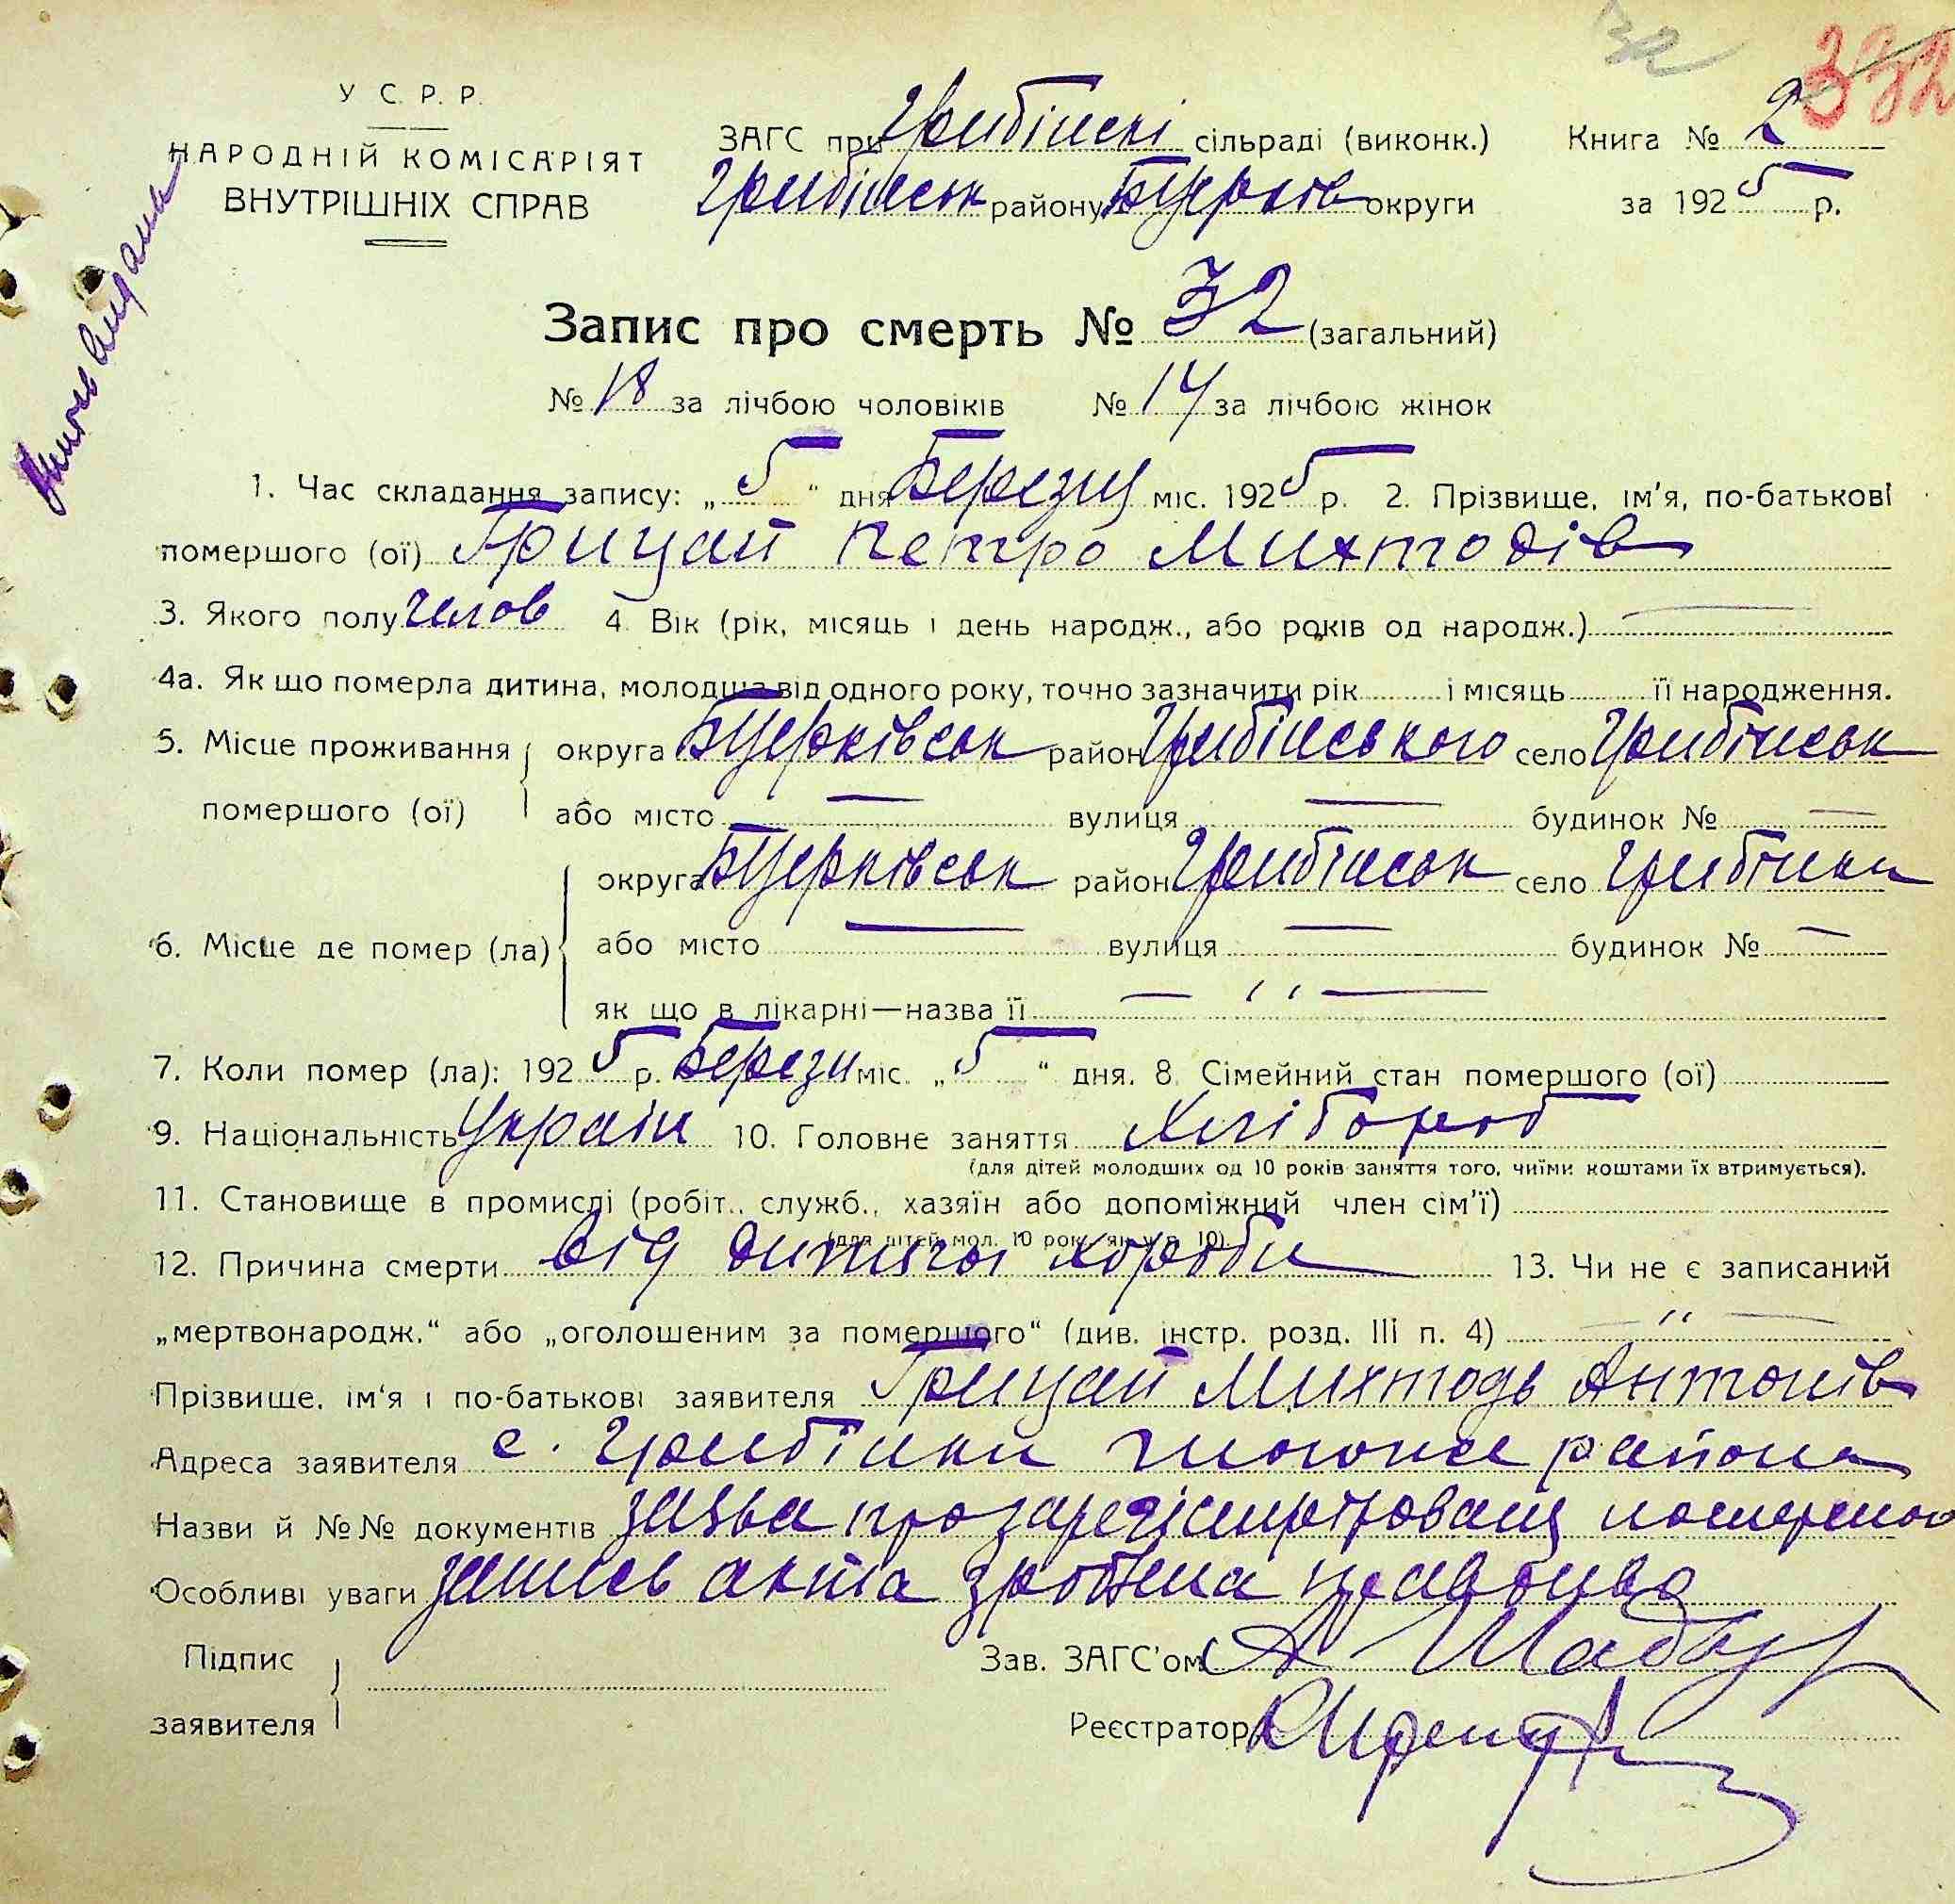 32
332
У С. Р. Р.
НАРОДНІЙ КОМІСАРІЯТ
ВНУТРІШНІХ СПРАВ
ЗАГС при Грибінскі сільраді (виконк.)
Грибінськ району БЦерків округи
Книга № 2
за 1925 р.
Запис про смерть № 32 (загальний)
№ 18 за лічбою чоловіків № 14 за лічбою жінок
1. Час складання запису: „5“ дня Березня міс. 1925 р. 2. Прізвище, ім'я, по-батькові
помершого (ої) Грицай Петро Михтодів
3. Якого полу челов 4. Вік (рік, місяць і день народж., або років од народж.) —
4а. Як що померла дитина, молодша від одного року, точно зазначити рік і місяць її народження.
5. Місце проживання помершого (ої)
округа БЦерківськ район Грибінського село Грибінськ
або місто — вулиця — будинок № —
6. Місце де помер (ла)
округа БЦерківськ район Грибінськ село Грибінки
або місто — вулиця — будинок № —
як що в лікарні—назва її — ״ —
7. Коли помер (ла): 1925 р. Березн міс. „5“ дня. 8. Сімейний стан помершого (ої)
9. Національність Україн 10. Головне заняття Хлібороб
(для дітей молодших од 10 років заняття того, чиїми коштами їх втримується).
11. Становище в промислі (робіт., служб., хазяїн або допоміжний член сім'ї)
(для дітей мол. 10 рок. як у п. 10).
12. Причина смерти від дитячої хороби 13. Чи не є записаний
„мертвонародж.“ або „оголошеним за помершого“ (див. інстр. розд. III п. 4) — ״ —
Прізвище, ім'я і по-батькові заявителя Грицай Михтодь Антонів
Адреса заявителя с. Грибінки тогоже района
Назви й №№ документів заява про зарегістріровання
Особливі уваги запись акта зроблена правдиво
Підпис
заявителя
Зав. ЗАГС'ом
Реєстратор